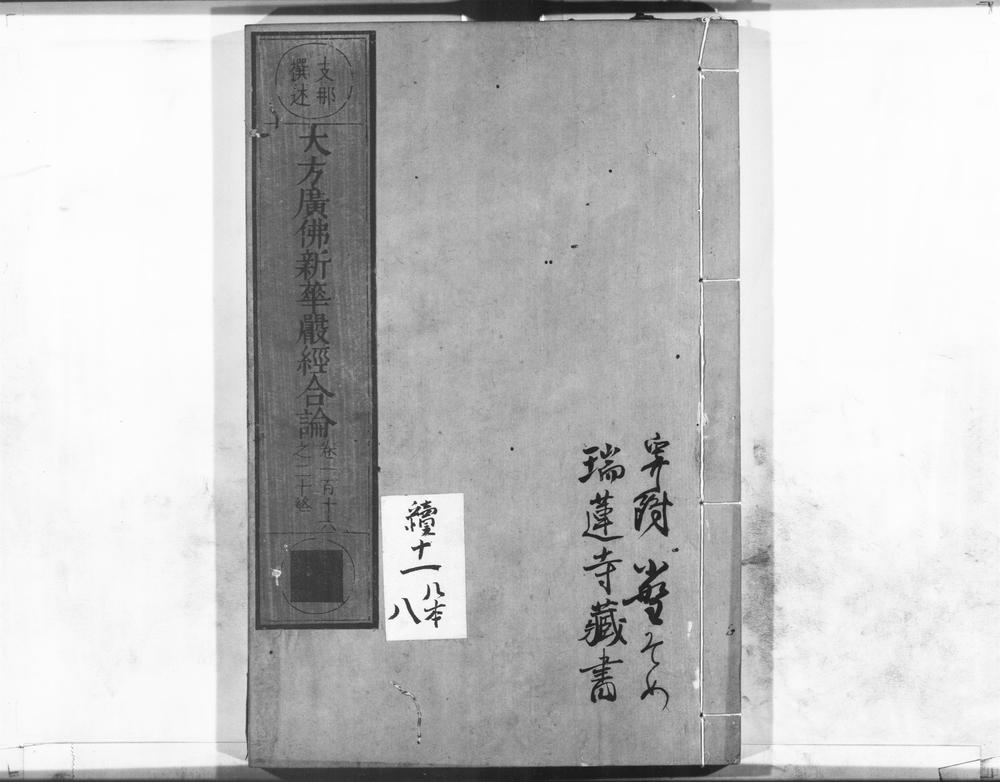 寄附
瑞蓮寺藏書
支那
撰述
大方廣佛新華嚴經合論
卷一百十六
之二十終
續十一
八本
八